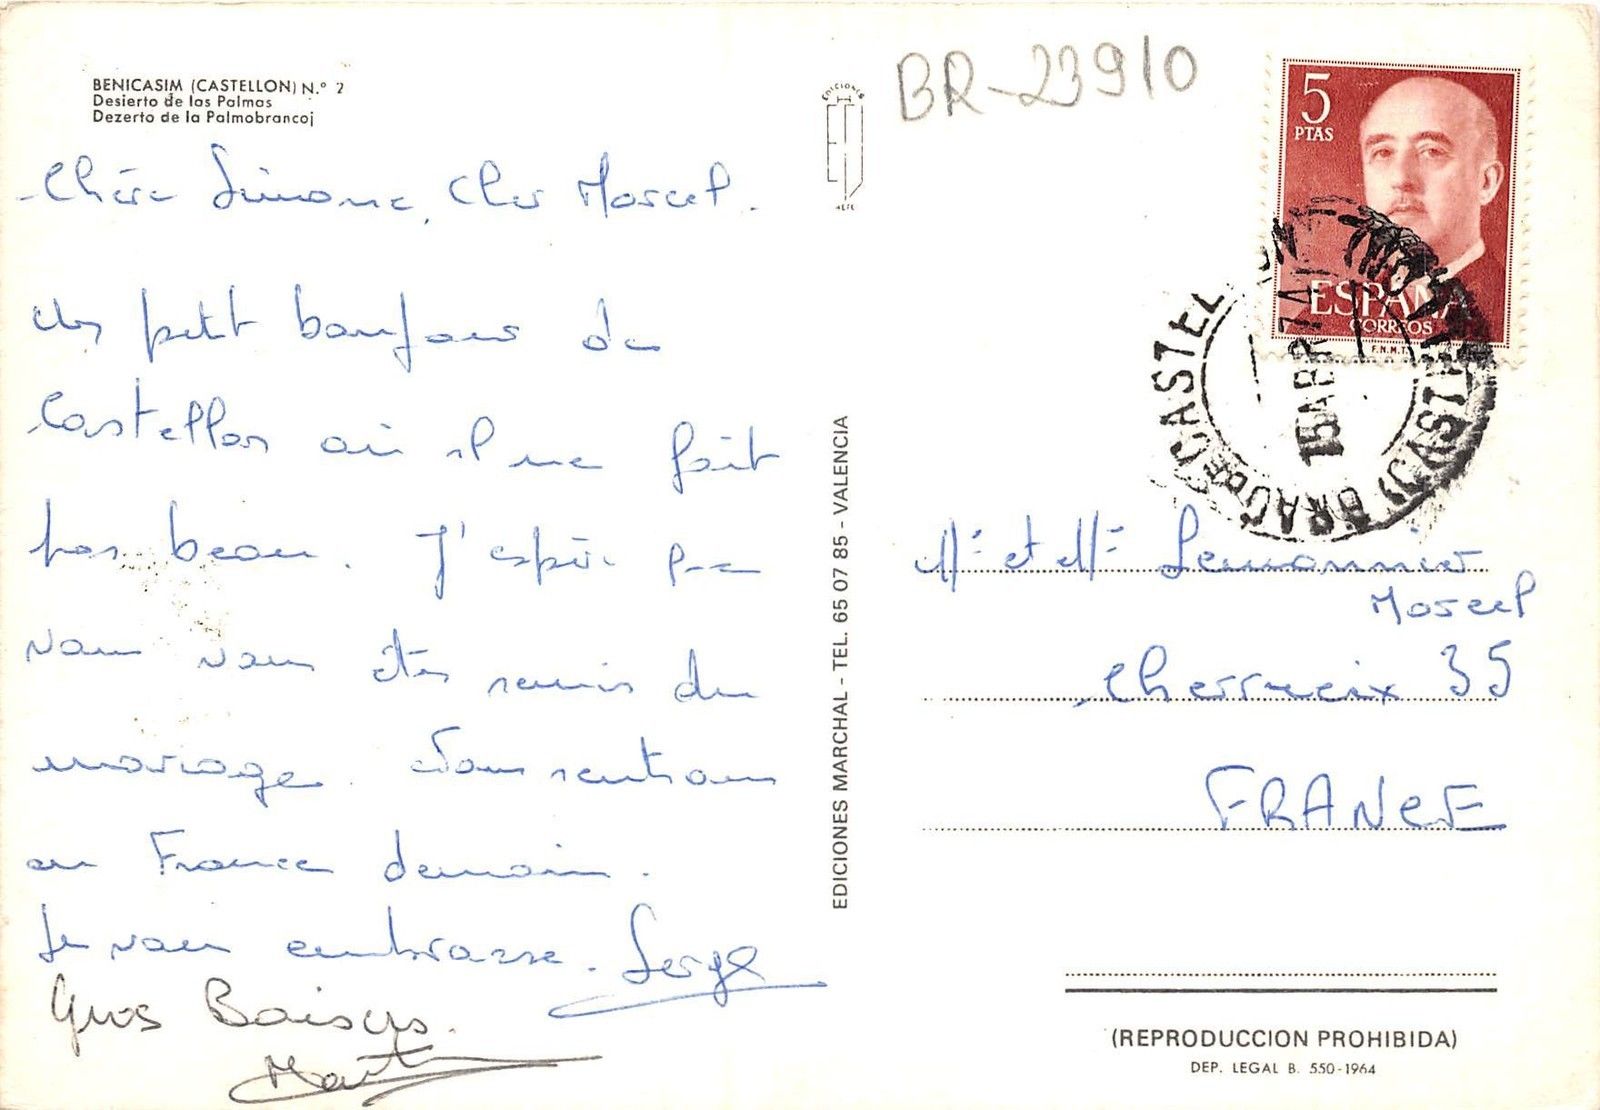 BENICASIM (CASTELLON) N.º 2
Desierto de las Palmas
Dezerto de la Palmobrancoj
Chère Simone, Cher Marcel.
Un petit bonjour de
Castellon où il ne fait
pas beau. J'espère que
vous vous êtes remis du
mariage. Nous rentrons
en France demain.
Je vous embrasse. Serge
Gros Baisers.
EDICIONES
EDICIONES MARCHAL - TEL. 65 07 85 - VALENCIA
BR-23910
5
PTAS
ESPAÑA
CORREOS
F.N.M.T.
15 ABR 74
Mr et Me Lemonnier
Marcel
Cherrueix 35
FRANCE
(REPRODUCCION PROHIBIDA)
DEP. LEGAL B. 550-1964